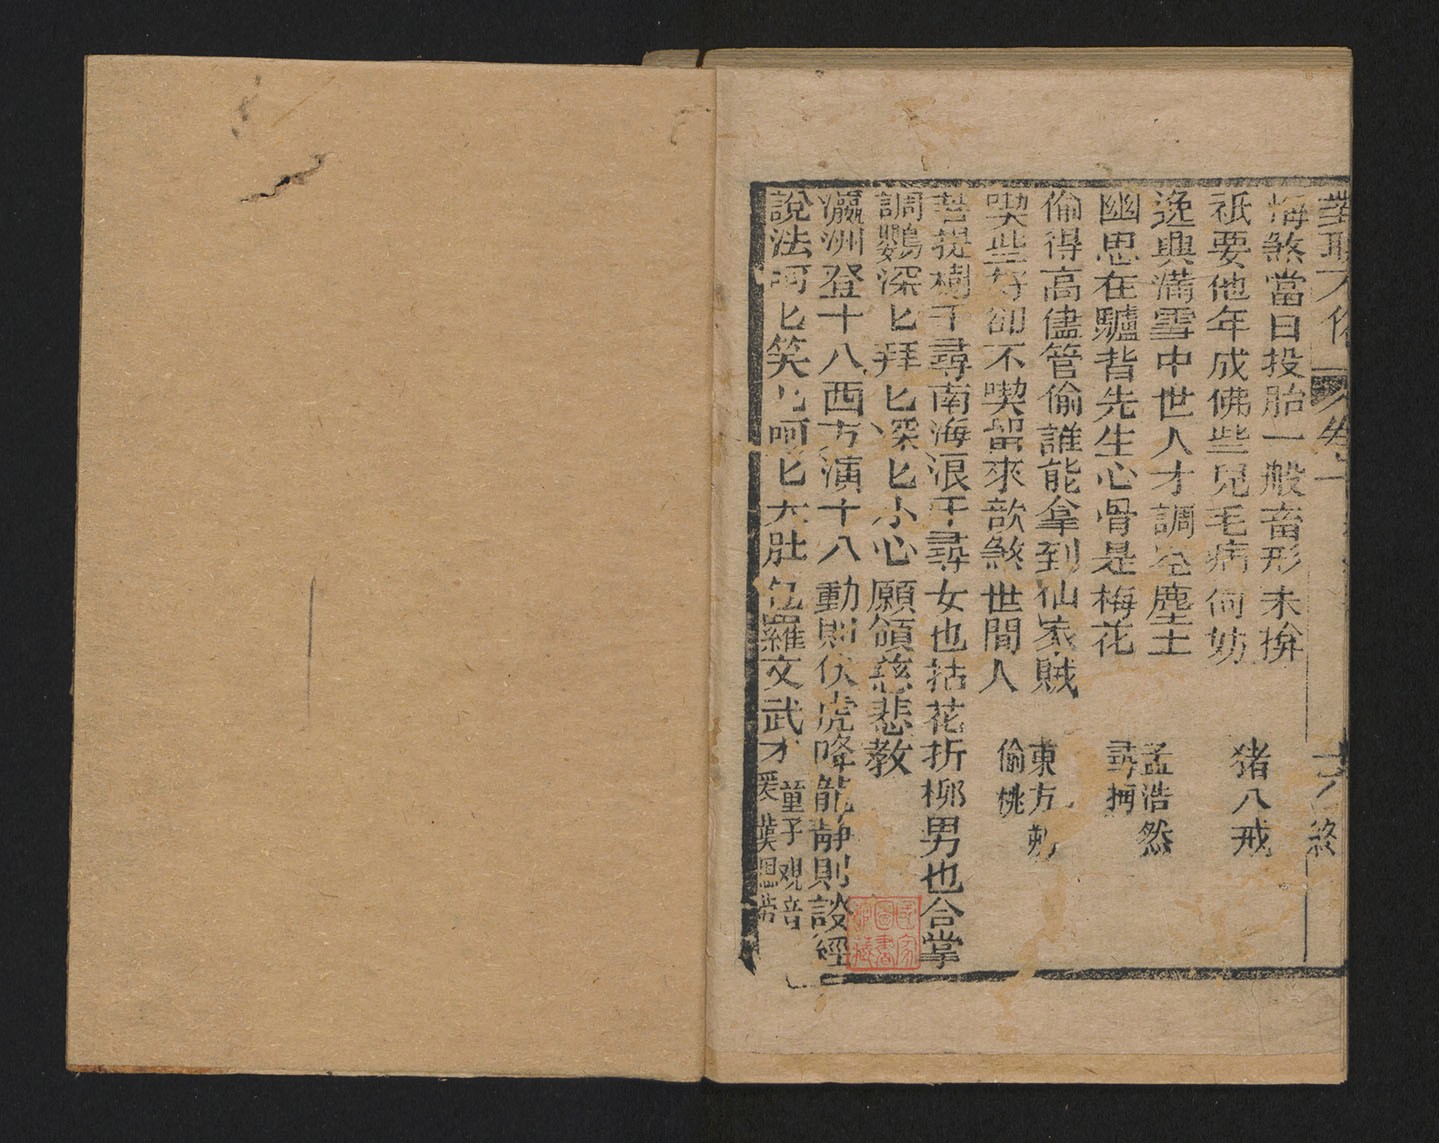 悔煞當日投胎一般畜形未揜
祇要他年成佛些兒毛病何妨
猪八戒
逸興滿雪中世人才調皆塵土
幽思在驢背先生心骨是梅花
孟浩然
尋梅
偷得高儘管偷誰能拿到仙家賊
喫些好卻不喫留來歆煞世間人
東方朔
偷桃
菩提樹千尋南海浪千尋女也拈花折柳男也合掌
調鸚深匕拜匕深匕小心願領慈悲教
瀛洲登十八西方演十八動則伏虎降龍靜則談經
說法呵匕笑匕呵匕大肚包羅文武才
童子觀音
國家
圖書